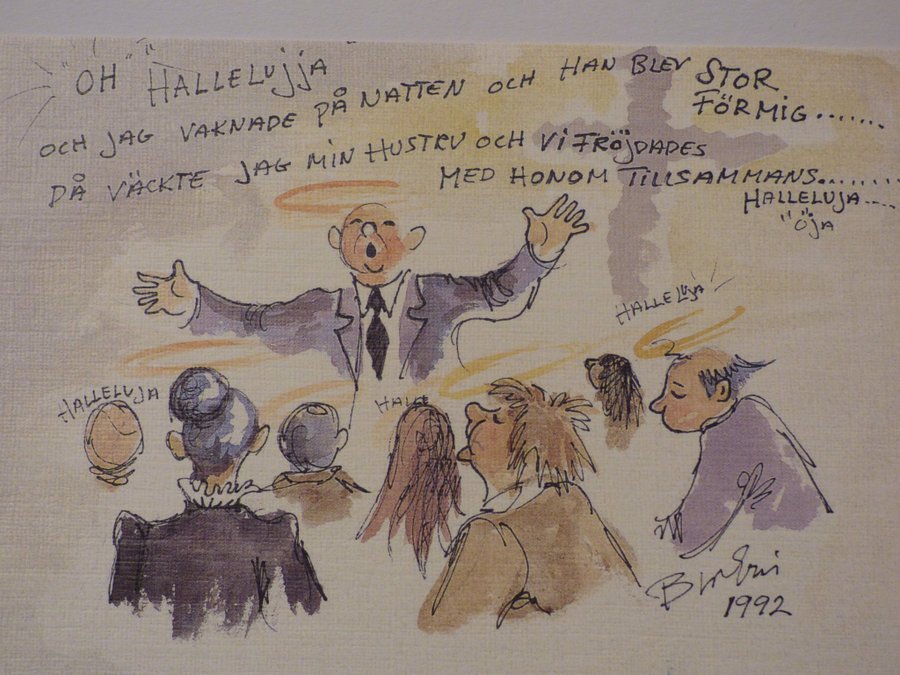 "OH" HALLELUJJA
OCH JAG VAKNADE PÅ NATTEN OCH HAN BLEV STOR
FÖRMIG.......
DÅ VÄCKTE JAG MIN HUSTRU OCH VI FRÖJDADES
MED HONOM TILLSAMMANS........
HALLELUJA....
"ÖJA
HALLELUJA
HALLELUJA
HALLE
1992